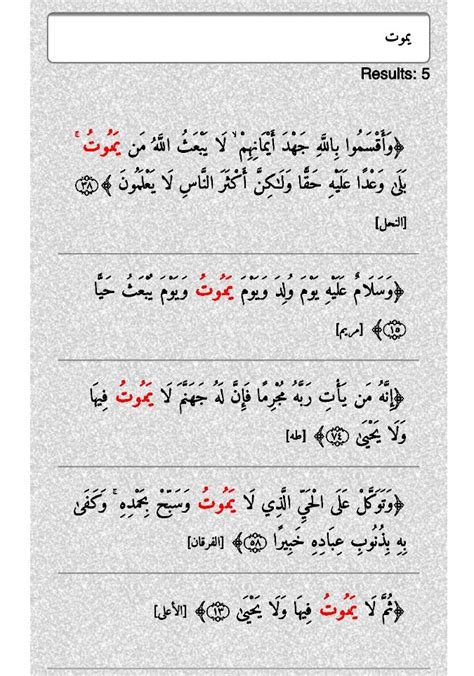 يموت
Results: 5
﴿وَأَقْسَمُوا بِاللَّهِ جَهْدَ أَيْمَانِهِمْ ۙ لَا يَبْعَثُ اللَّهُ مَن يَمُوتُ ۚ
بَلَىٰ وَعْدًا عَلَيْهِ حَقًّا وَلَٰكِنَّ أَكْثَرَ النَّاسِ لَا يَعْلَمُونَ ﴾٣٨
[النحل]
﴿وَسَلَامٌ عَلَيْهِ يَوْمَ وُلِدَ وَيَوْمَ يَمُوتُ وَيَوْمَ يُبْعَثُ حَيًّا
١٥﴾ [مريم]
﴿إِنَّهُ مَن يَأْتِ رَبَّهُ مُجْرِمًا فَإِنَّ لَهُ جَهَنَّمَ لَا يَمُوتُ فِيهَا
وَلَا يَحْيَىٰ ٧٤﴾ [طه]
﴿وَتَوَكَّلْ عَلَى الْحَيِّ الَّذِي لَا يَمُوتُ وَسَبِّحْ بِحَمْدِهِ ۚ وَكَفَىٰ
بِهِ بِذُنُوبِ عِبَادِهِ خَبِيرًا ٥٨﴾ [الفرقان]
﴿ثُمَّ لَا يَمُوتُ فِيهَا وَلَا يَحْيَىٰ ١٣﴾ [الأعلى]